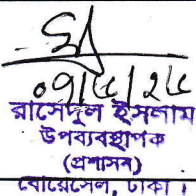 ০৭/৫/২৫
রাসেদুল ইসলাম
উপব্যবস্থাপক
(প্রশাসন)
বোয়েসেল, ঢাকা।